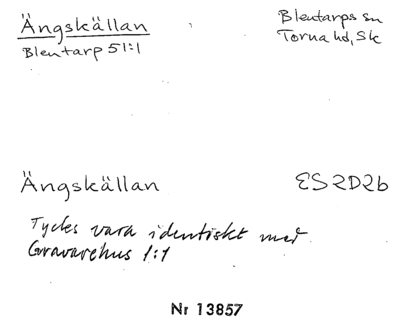 Ängskällan
Blentarps sn
Blentarp 51:1
Torna hd, Sk
Ängskällan
ES 2D2b
Tycks vara identiskt med
Gravarehus 1:1
Nr 13857